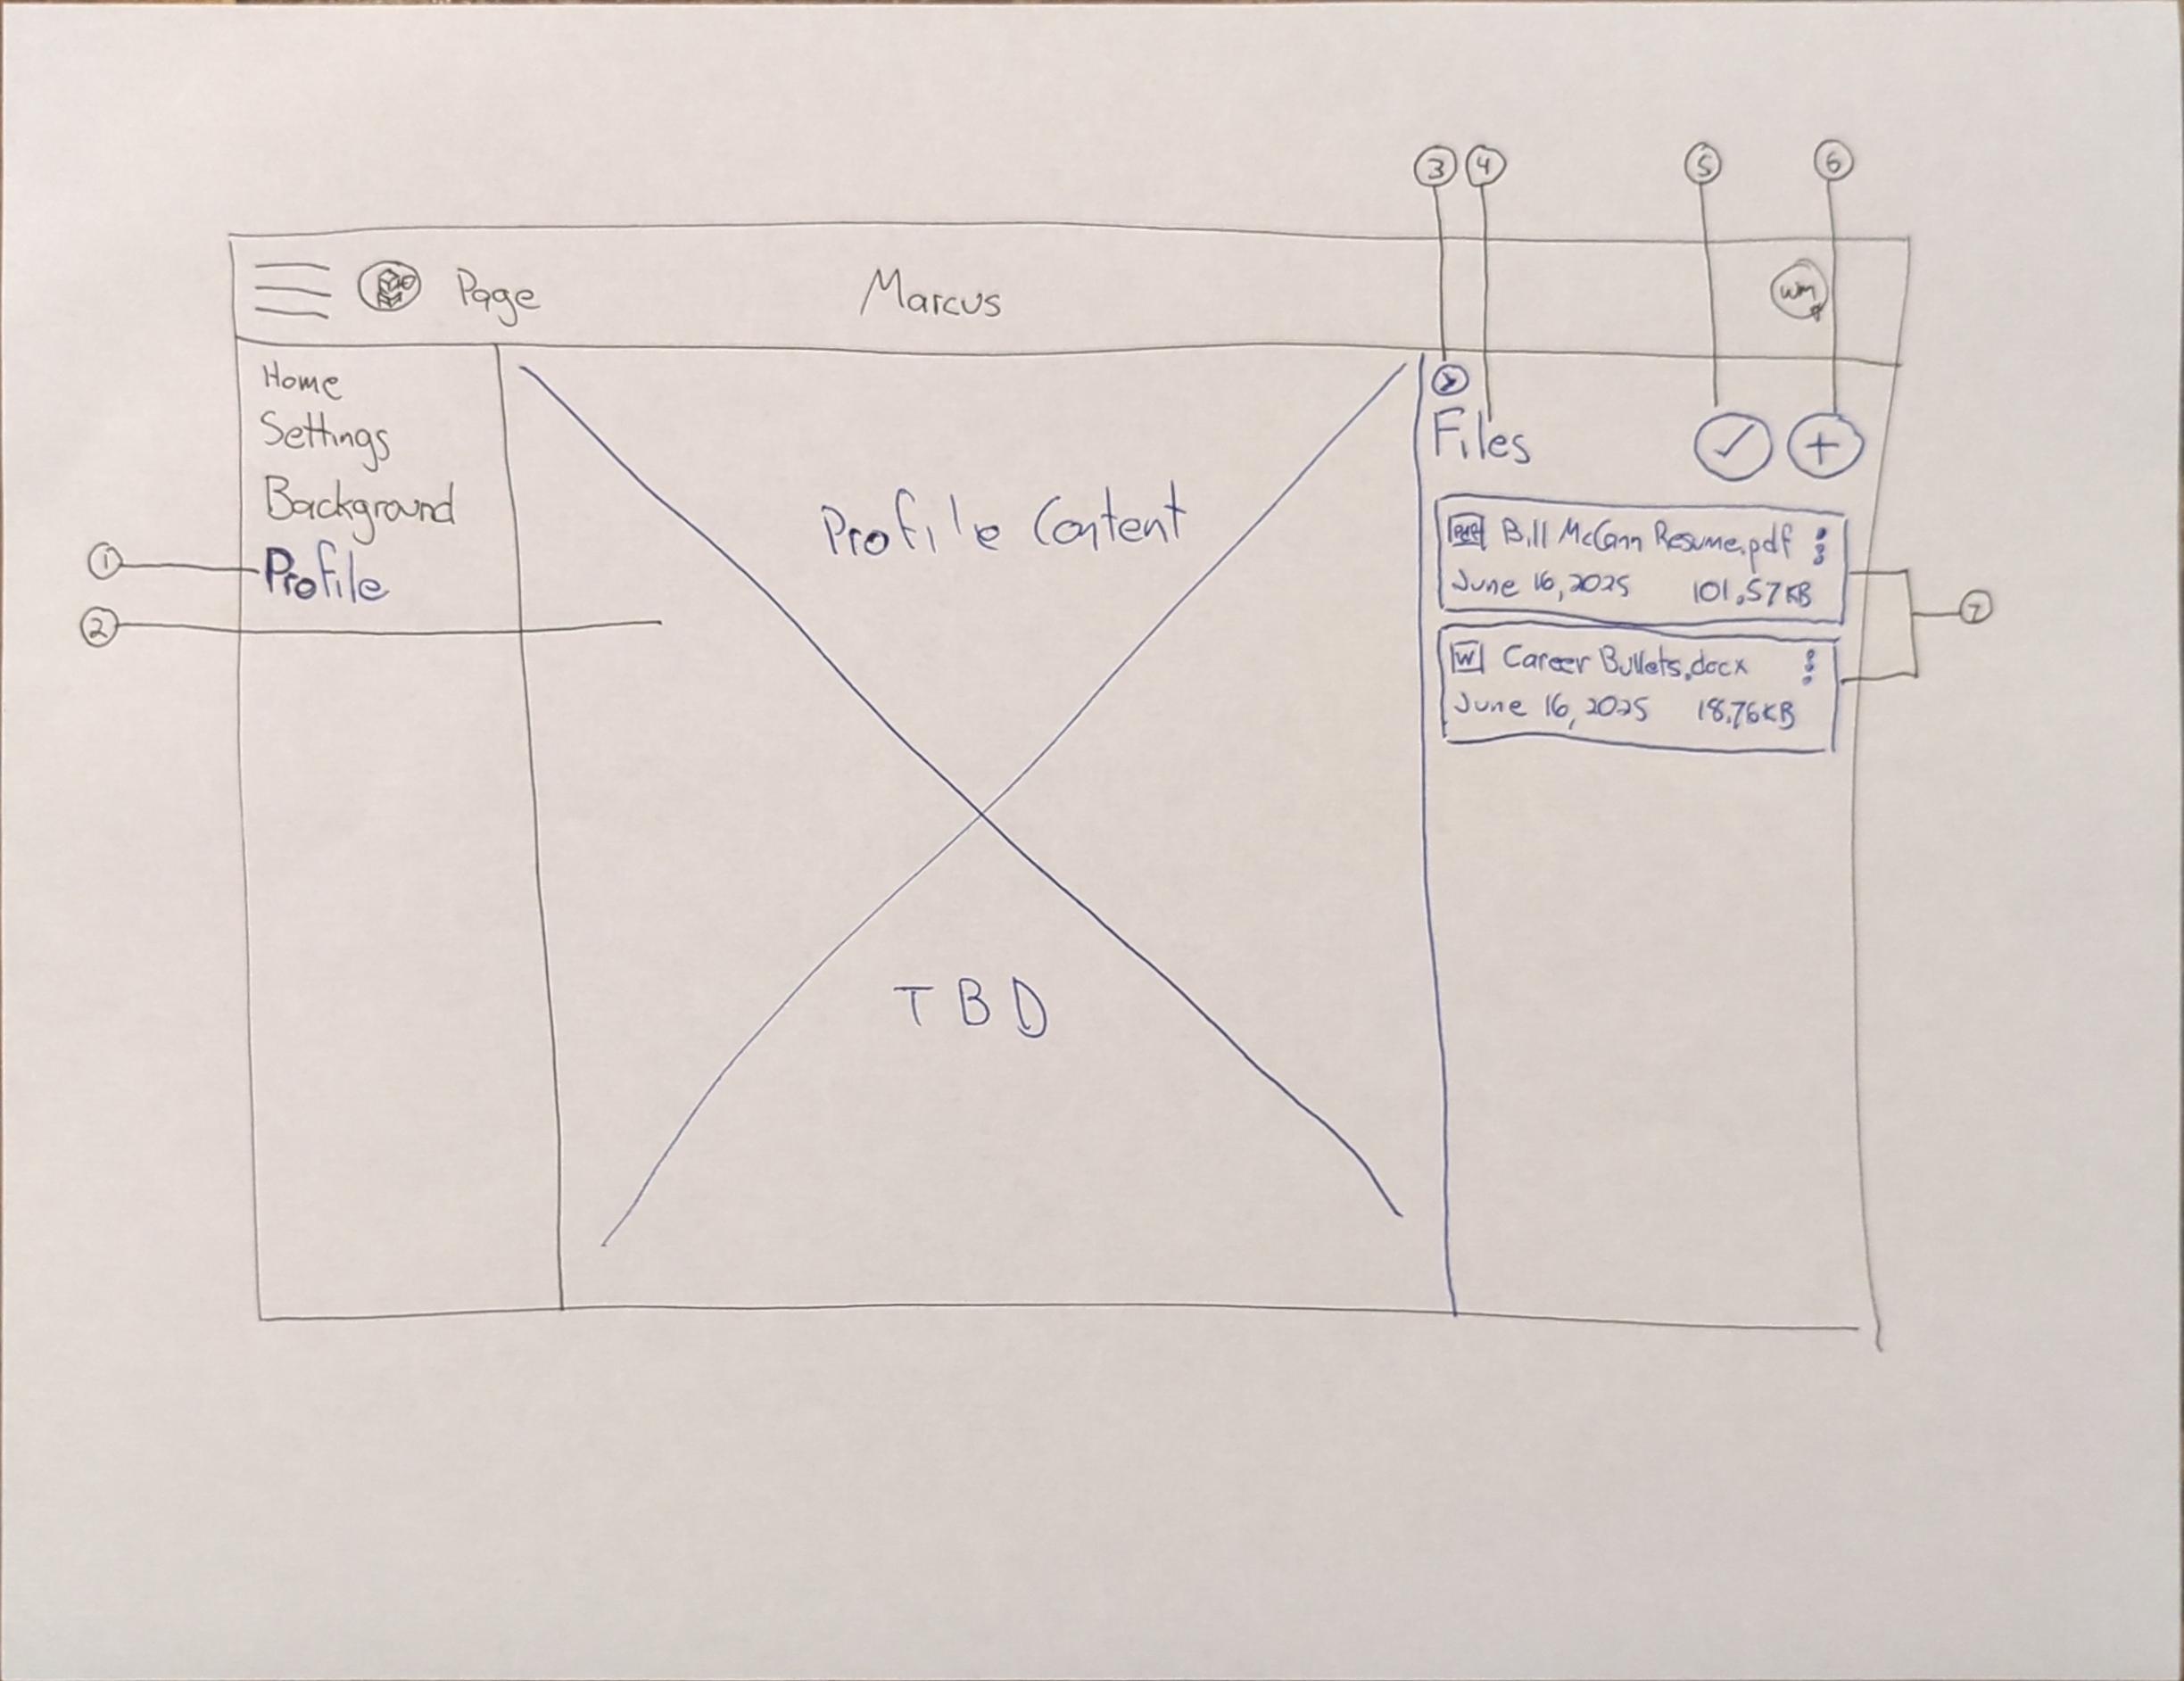 3 4 5 6
Page Marcus wm
Home
Settings
Background
1 Profile
2
Profile Content
TBD
Files
PDF Bill McCann Resume.pdf
June 16, 2025 101.57KB
7
W Career Bullets.docx
June 16, 2025 18.76KB